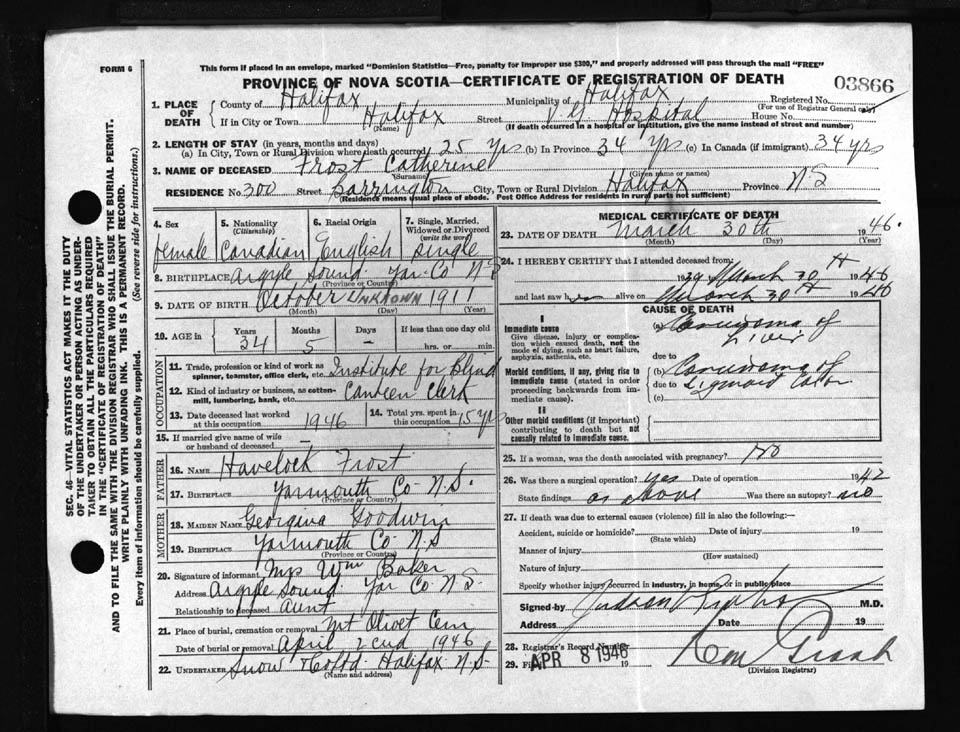 FORM 6
This form if placed in an envelope, marked “Dominion Statistics—Free, penalty for improper use $300,” and properly addressed will pass through the mail “FREE”
PROVINCE OF NOVA SCOTIA—CERTIFICATE OF REGISTRATION OF DEATH
03866
1. PLACE OF DEATH County of Halifax Municipality of Halifax Registered No.
(For use of Registrar General only)
If in City or Town Halifax Street V G Hospital House No.
(Name) (If death occurred in a hospital or institution, give the name instead of street and number)
2. LENGTH OF STAY (in years, months and days)
(a) In City, Town or Rural Division where death occurred 25 yrs (b) In Province 34 yrs (c) In Canada (if immigrant) 34 yrs
3. NAME OF DECEASED Frost Catherine
(Surname) (Given name or names)
RESIDENCE No. 300 Street Barrington City, Town or Rural Division Halifax Province N S
(Residence means usual place of abode. Post Office Address for residents in rural parts not sufficient)
4. Sex 5. Nationality (Citizenship) 6. Racial Origin 7. Single, Married, Widowed or Divorced (write the word)
Female Canadian English Single
8. BIRTHPLACE Argyle Sound Yar. Co N S
(Province or Country)
9. DATE OF BIRTH October Unknown 1911
(Month) (Day) (Year)
10. AGE in Years Months Days If less than one day old
34 5 - hrs. or min.
OCCUPATION
11. Trade, profession or kind of work as spinner, teamster, office clerk, etc. Institute for Blind
12. Kind of industry or business, as cotton-mill, lumbering, bank, etc. Canteen Clerk
13. Date deceased last worked at this occupation 1946 14. Total yrs. spent in this occupation 15 yrs
15. If married give name of wife or husband of deceased —
FATHER
16. NAME Havelock Frost
17. BIRTHPLACE Yarmouth Co N.S.
(Province or Country)
MOTHER
18. MAIDEN NAME Georgina Goodwin
19. BIRTHPLACE Yarmouth Co N.S
(Province or Country)
20. Signature of informant Mrs Wm Baker
Address Argyle Sound Yar Co N S
Relationship to deceased Aunt
21. Place of burial, cremation or removal Mt Olivet Cem
Date of burial or removal April 2nd 1946
22. UNDERTAKER Snow & Co Ltd. Halifax N.S.
(Name and address)
MEDICAL CERTIFICATE OF DEATH
23. DATE OF DEATH March 30th 1946.
(Month) (Day) (Year)
24. I HEREBY CERTIFY that I attended deceased from:
1939 March 30th 1946
and last saw her alive on March 30th 1946
CAUSE OF DEATH
I
Immediate cause
Give disease, injury or complication which caused death, not the mode of dying, such as heart failure, asphyxia, asthenia, etc.
(a) Carcinoma of Liver
due to
Morbid conditions, if any, giving rise to immediate cause (stated in order proceeding backwards from immediate cause).
(b) Carcinoma of
due to Sigmoid Colon
(c)
II
Other morbid conditions (if important) contributing to death but not causally related to immediate cause.
25. If a woman, was the death associated with pregnancy? No
26. Was there a surgical operation? Yes Date of operation 1942
State findings as above Was there an autopsy? no
27. If death was due to external causes (violence) fill in also the following:-
Accident, suicide or homicide? Date of injury 19
(State which)
Manner of injury
(How sustained)
Nature of injury
Specify whether injury occurred in industry, in home, or in public place
Signed by M.D.
Address Date 19
28. Registrar's Record Number
29. Filed APR 8 1946 19
(Division Registrar)
SEC. 46—VITAL STATISTICS ACT MAKES IT THE DUTY
OF THE UNDERTAKER OR PERSON ACTING AS UNDER-
TAKER TO OBTAIN ALL THE PARTICULARS REQUIRED
IN THE “CERTIFICATE OF REGISTRATION OF DEATH”
AND TO FILE THE SAME WITH THE DIVISION REGISTRAR WHO SHALL ISSUE THE BURIAL PERMIT.
WRITE PLAINLY WITH UNFADING INK. THIS IS A PERMANENT RECORD.
Every item of information should be carefully supplied. (See reverse side for instructions.)